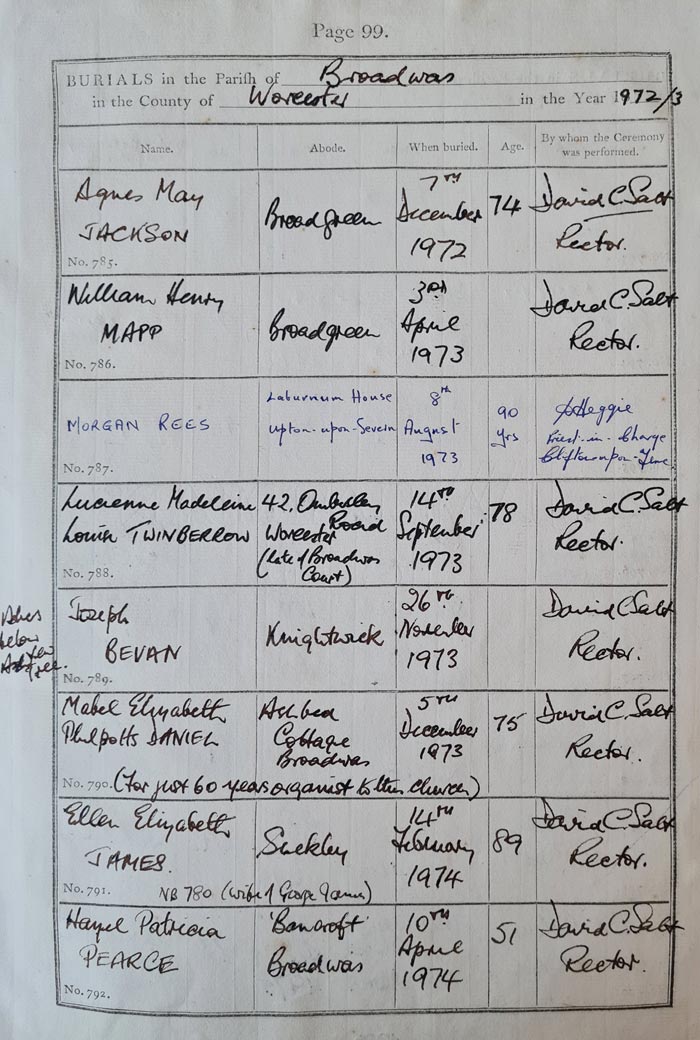 Page 99.
BURIALS in the Parish of Broadwas
in the County of Worcester in the Year 1972/3
Name. Abode. When buried. Age. By whom the Ceremony was performed.
Agnes May
JACKSON
No. 785.
Broadgreen
7TH
December
1972
74
David C. Salt
Rector.
William Henry
MAPP
No. 786.
Broadgreen
3RD
April
1973
David C. Salt
Rector.
MORGAN REES
No. 787.
Laburnum House
Upton-upon-Severn
8th
August
1973
90
yrs
Heggie
Priest-in-Charge
Clifton-upon-Teme
Lucienne Madeleine
Louise TWINBERROW
No. 788.
42, Ombersley
Road
Worcester
(late of Broadwas
Court)
14TH
September
1973
78
David C. Salt
Rector.
Ashes
below
yew
tree.
Joseph
BEVAN
No. 789.
Knightwick
26TH
November
1973
David C. Salt
Rector.
Mabel Elizabeth
Philpotts DANIEL
No. 790. (For just 60 years organist to this church)
Ashbed
Cottage
Broadwas
5TH
December
1973
75
David C. Salt
Rector.
Ellen Elizabeth
JAMES.
No. 791. NB 780 (wife of George James)
Suckley
14TH
February
1974
89
David C. Salt
Rector.
Hazel Patricia
PEARCE
No. 792.
'Bancroft'
Broadwas
10TH
April
1974
51
David C. Salt
Rector.